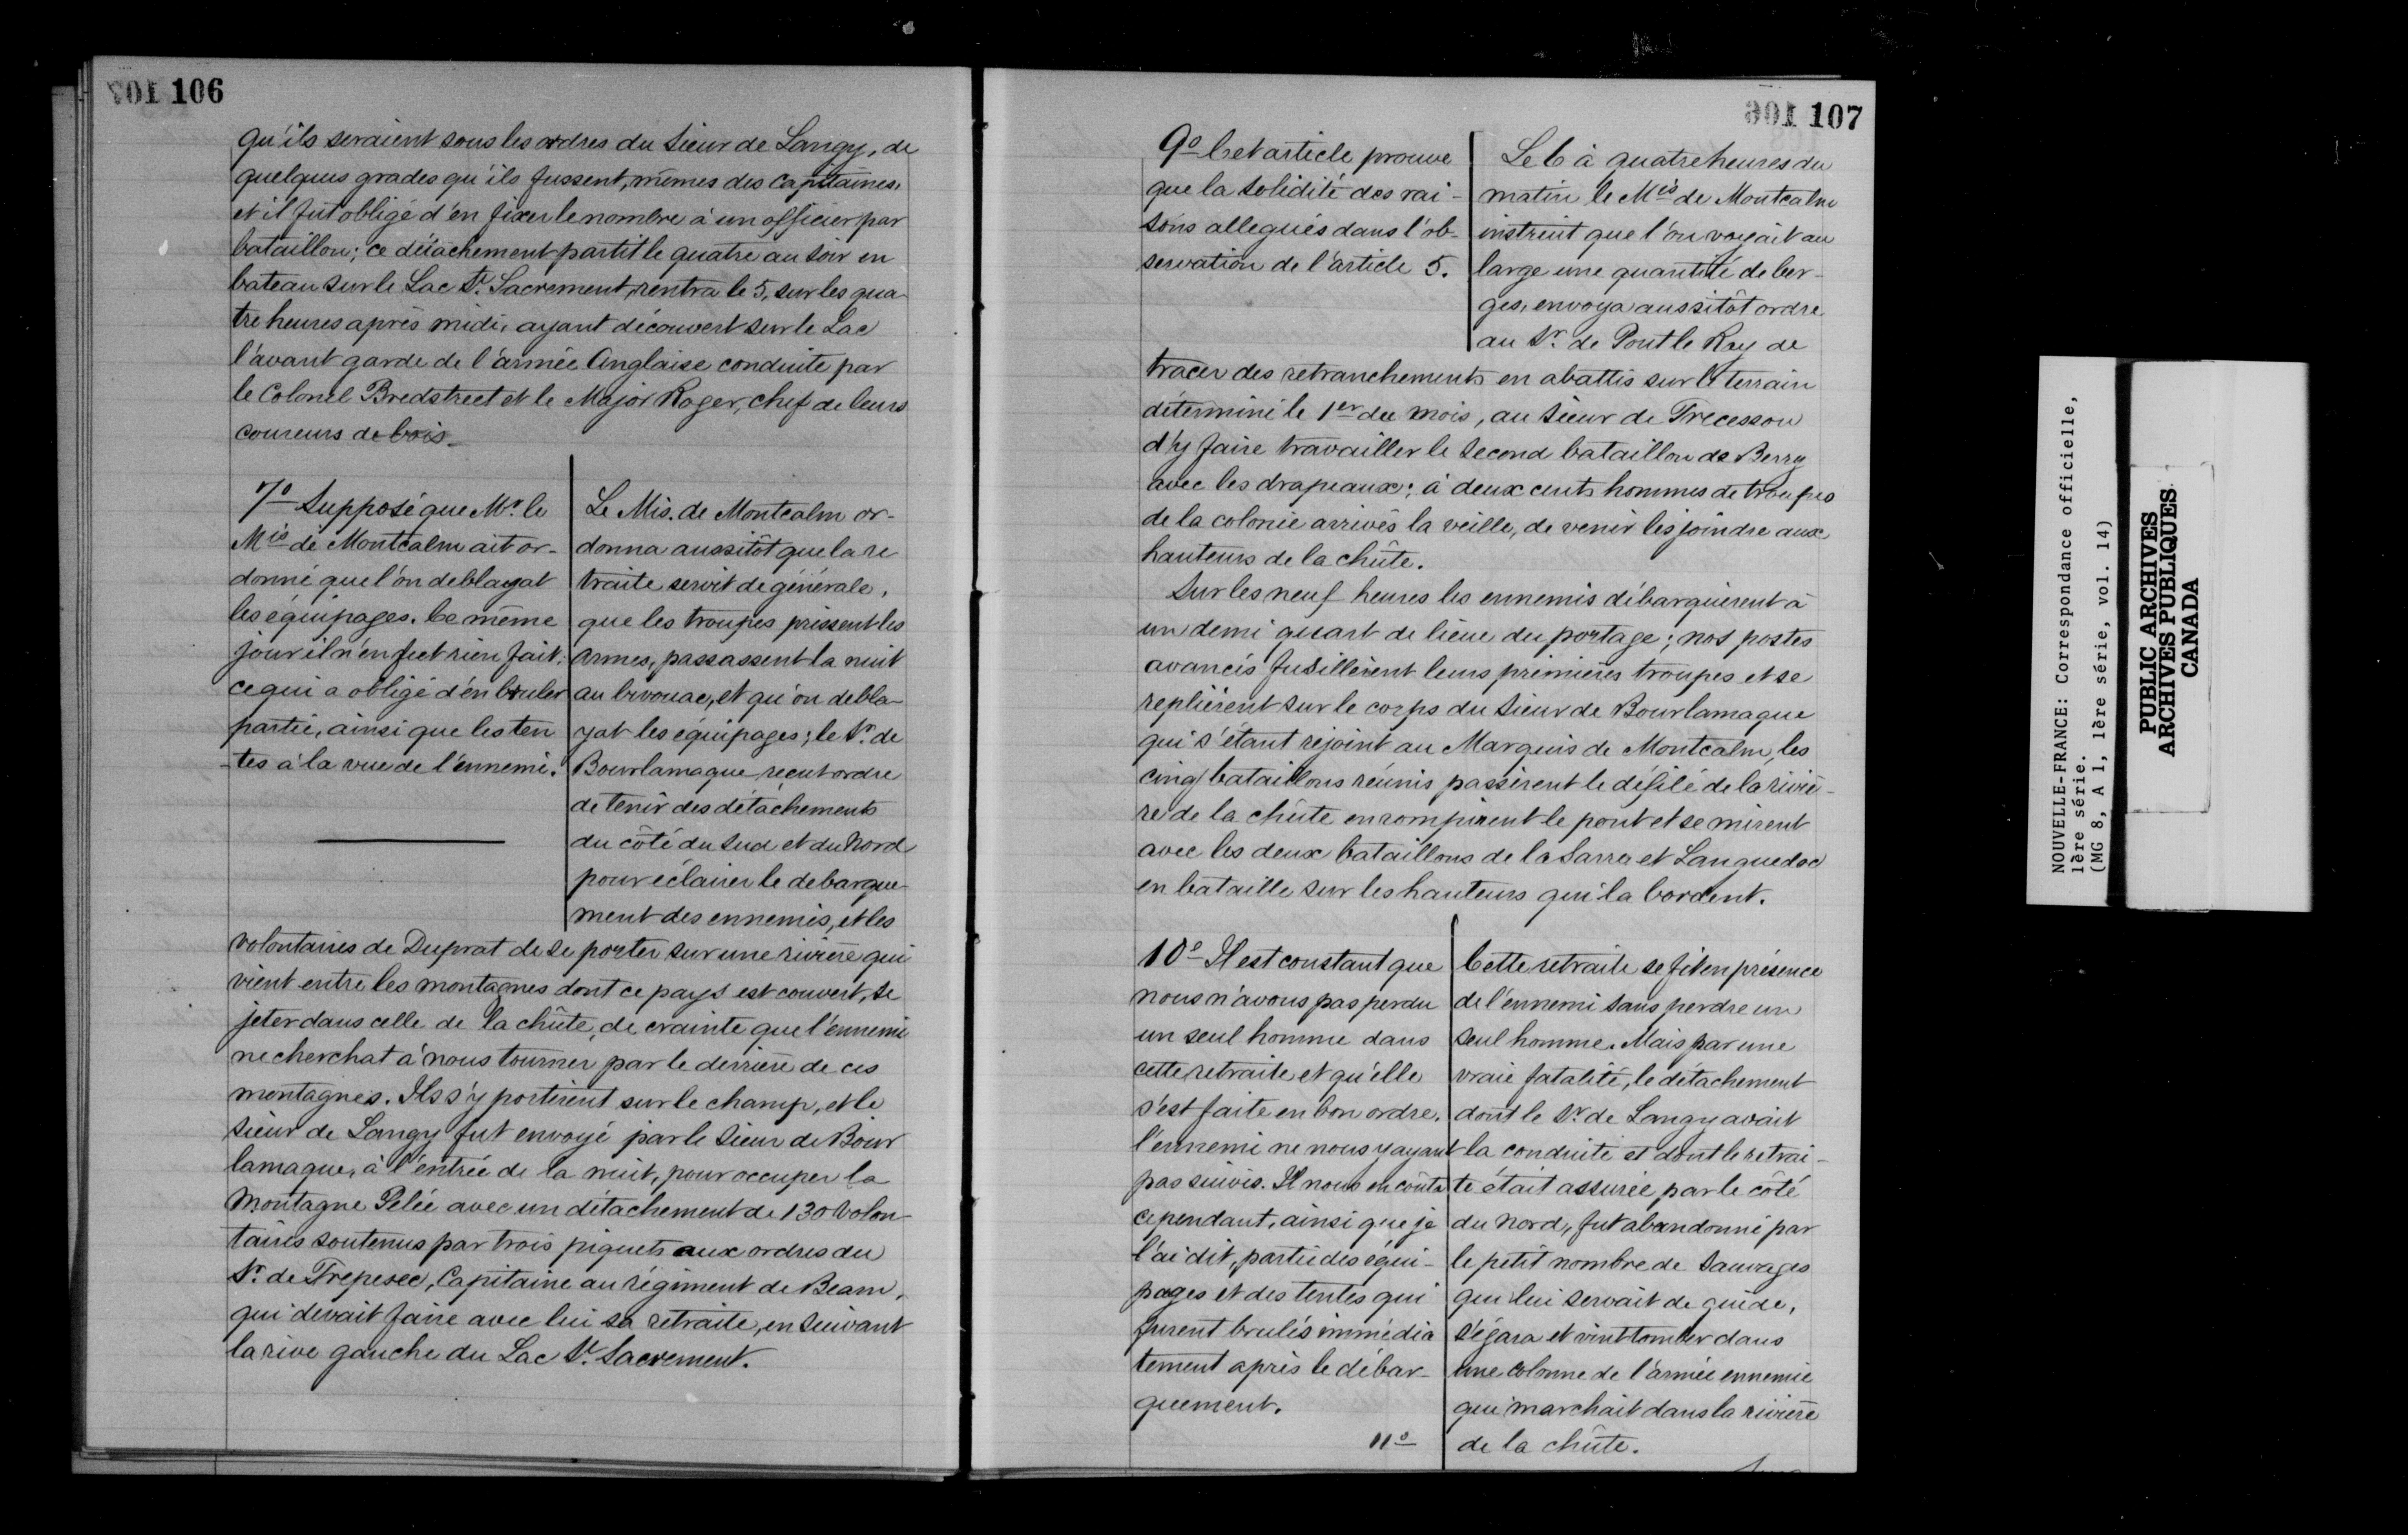 106
qu'ils seraient sous les ordres du Sieur de Langy, de
quelques grades qu'ils fussent, mêmes des Capitaines,
et il fut obligé d'en fixer le nombre à un officier par
bataillon; ce détachement partit le quatre au soir en
bateau sur le Lac St. Sacrement, rentra le 5, sur les qua-
tre heures après midi, ayant découvert sur le Lac
l'avant garde de l'armée Anglaise conduite par
le Colonel Bredstreet et le Major Roger, chef de leurs
coureurs de bois.
7o Supposé que Mr. le
Mis de Montcalm ait or-
donné que l'on deblayat
les équipages. Ce même
jour il n'en fut rien fait,
ce qui a obligé d'en bruler
partie, ainsi que les ten
-tes à la vue de l'ennemi.
Le Mis. de Montcalm or-
donna aussitôt que la re
traite servit de générale,
que les troupes prissent les
armes, passassent la nuit
au bivouac, et qu'on debla-
yat les équipages; le Sr. de
Bourlamaque reçut ordre
de tenir des détachements
du côté du Sud et du Nord
pour éclairer le debarque-
ment des ennemis, et les
volontaires de Duprat de se porter sur une rivière qui
vient entre les montagnes dont ce pays est couvert, se
jeter dans celle de la chûte, de crainte que l'ennemi
ne cherchat à nous tourner par le derrière de ces
montagnes. Ils s'y portèrent sur le champ, et le
Sieur de Langy fut envoyé par le Sieur de Bour
lamaque, à l'entrée de la nuit, pour occuper la
Montagne Pelée avec un détachement de 130 Volon-
taires soutenus par trois piquets aux ordres du
Sr. de Trepesec, Capitaine au régiment de Bearn,
qui devait faire avec lui sa retraite, en suivant
la rive gauche du Lac St. Sacrement.
107
9o Cet article prouve
que la solidité des rai-
sons allegués dans l'ob-
servation de l'article 5.
Le 6 à quatre heures du
matin le Mis de Montcalm
instruit que l'on voyait au
large une quantité de ber-
ges, envoya aussitôt ordre
au Sr. de Pont le Roy de
tracer des retranchements en abattis sur le terrain
déterminé le 1er du mois, au Sieur de Trecesson
d'y faire travailler le second bataillon de Berry
avec les drapeaux; à deux cents hommes de troupes
de la colonie arrivés la veille, de venir les joindre aux
hauteurs de la chûte.
Sur les neuf heures les ennemis débarquèrent à
un demi quart de lieue du portage; nos postes
avancés fusillèrent leurs premières troupes et se
replièrent sur le corps du Sieur de Bourlamaque
qui s'étant rejoint au Marquis de Montcalm, les
cinq bataillons réunis passèrent le défilé de la riviè-
re de la chûte en rompirent le pont et se mirent
avec les deux bataillons de la Sarre et Languedoc
en bataille sur les hauteurs qui la bordent.
10o Il est constant que
nous n'avons pas perdu
un seul homme dans
cette retraite et qu'elle
s'est faite en bon ordre,
l'ennemi ne nous y ayant
pas suivis. Il nous en coûta
cependant, ainsi que je
l'ai dit, partie des équi-
pages et des tentes qui
furent brulés immédia
tement après le débar-
quement.
11o
Cette retraite se fit en présence
de l'ennemi sans perdre un
seul homme. Mais par une
vraie fatalité, le détachement
dont le Sr. de Langy avait
la conduite et dont le retrai-
te était assurée par le côté
du Nord, fut abandonné par
le petit nombre de Sauvages
qui lui servait de guide,
s'égara et vint tomber dans
une colonne de l'armée ennemie
qui marchait dans la rivière
de la chûte.
NOUVELLE-FRANCE: Correspondance officielle,
1ère série.
(MG 8, A 1, 1ère série, vol. 14)
PUBLIC ARCHIVES
ARCHIVES PUBLIQUES
CANADA